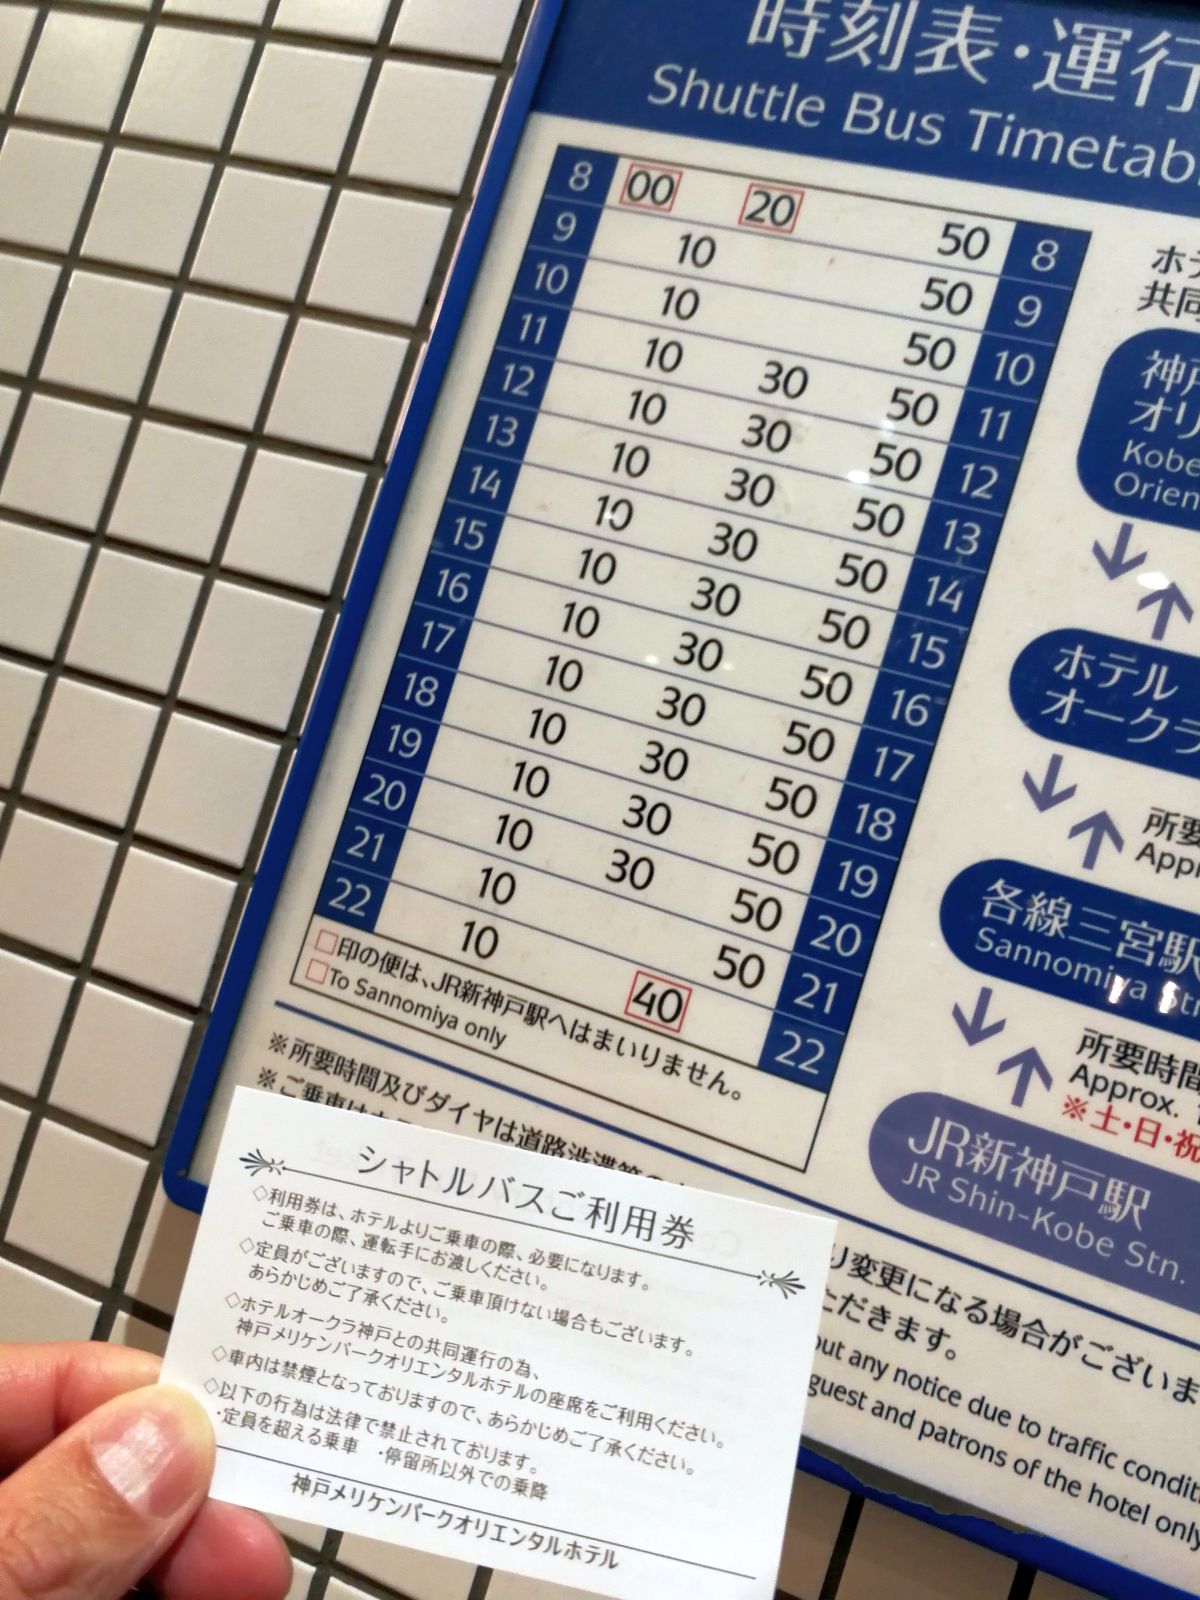 時刻表・運行
Shuttle Bus Timetab
8 00 20 50 8
9 10 50 9
10 10 50 10
11 10 30 50 11
12 10 30 50 12
13 10 30 50 13
14 10 30 50 14
15 10 30 50 15
16 10 30 50 16
17 10 30 50 17
18 10 30 50 18
19 10 30 50 19
20 10 30 50 20
21 10 50 21
22 10 40 22
□印の便は、JR新神戸駅へはまいりません。
□To Sannomiya only
※所要時間及びダイヤは道路渋滞
※ご乗車は
ホテ
共同
神戸
オリ
Kobe
Orien
ホテル
オークラ
所要
Appr
各線三宮駅
Sannomiya Stn
所要時間
Approx.
※土・日・祝
JR新神戸駅
JR Shin-Kobe Stn.
り変更になる場合がございま
ただきます。
out any notice due to traffic condit
guest and patrons of the hotel only
シャトルバスご利用券
◇利用券は、ホテルよりご乗車の際、必要になります。
ご乗車の際、運転手にお渡しください。
◇定員がございますので、ご乗車頂けない場合もございます。
あらかじめご了承ください。
◇ホテルオークラ神戸との共同運行の為、
神戸メリケンパークオリエンタルホテルの座席をご利用ください。
◇車内は禁煙となっておりますので、あらかじめご了承ください。
◇以下の行為は法律で禁止されております。
・定員を超える乗車 ・停留所以外での乗降
神戸メリケンパークオリエンタルホテル